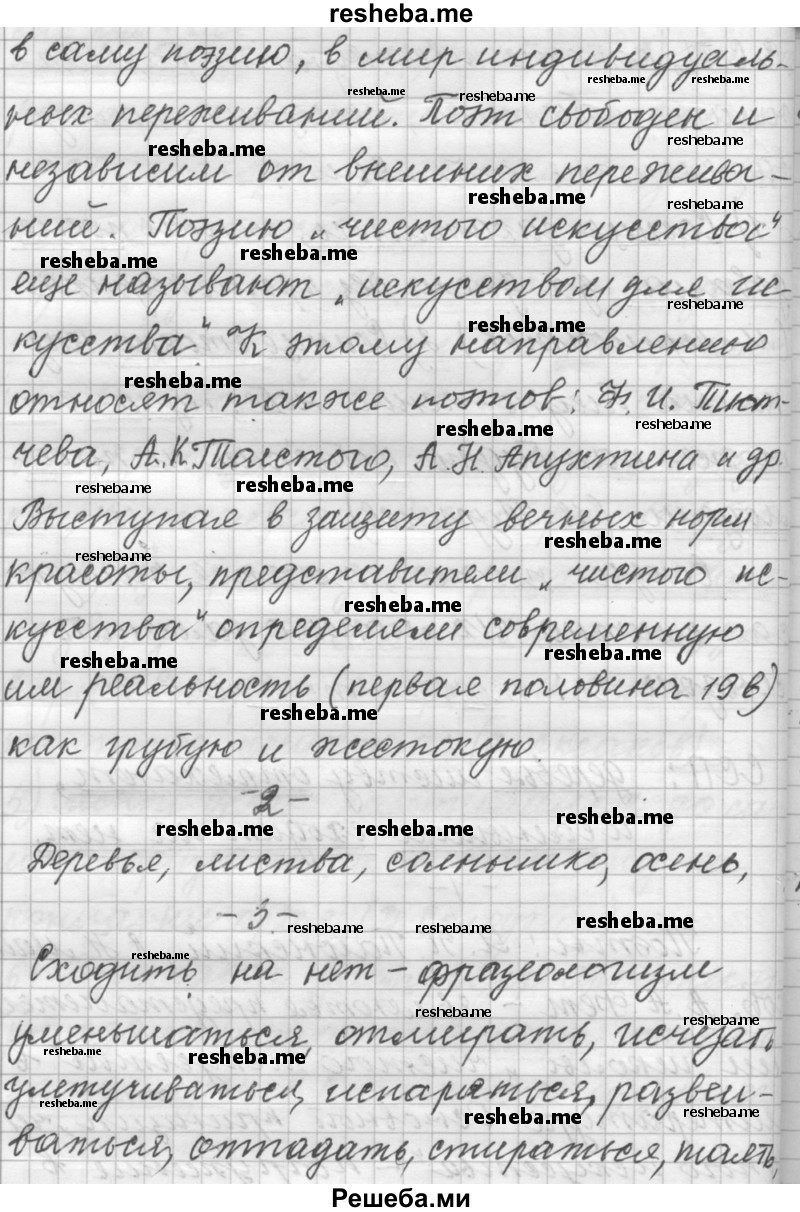 resheba.me
в саму поэзию, в мир индивидуаль-
ных переживаний. Поэт свободен и
независим от внешних пережива-
ний. Поэзию „чистого искусства"
еще называют „искусством для ис-
кусства" К этому направлению
относят также поэтов: Ф. И. Тют-
чева, А.К Толстого, А.Н. Апухтина и др.
Выступая в защиту вечных норм
красоты, представители „чистого ис-
кусства" определяли современную
им реальность (первая половина 19 в)
как грубую и жестокую.
-2-
Деревья, листва, солнышко, осень,
-3-
Сходить на нет - фразеологизм
уменьшаться, отмирать, исчезать
улетучиваться, испаряться, развеи-
ваться, отпадать, стираться, таять,
Решеба.ми